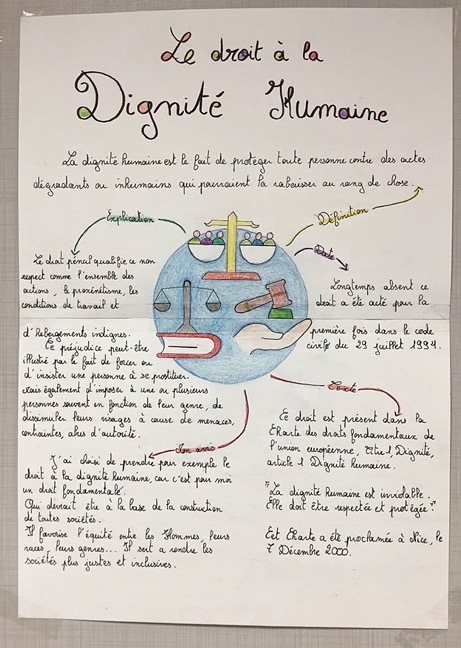 Le droit à la
Dignité Humaine
La dignité humaine est le fait de protéger toute personne contre des actes
dégradants ou inhumains qui pourraient la rabaisser au rang de chose.
Explication
Définition
Date
Le droit pénal qualifie ce non
respect comme l'ensemble des
actions, le proxénétisme, les
conditions de travail et
d'hébergements indignes.
Ce préjudice peut-être
illustré par le fait de forcer ou
d'insister une personne à se prostituer.
Mais également d'imposer à une ou plusieurs
personnes souvent en fonction de leur genre, de
dissimuler leurs visages à cause de menaces,
contraintes, abus d'autorité.
Longtemps absent ce
droit a été acté pour la
première fois dans le code
civil du 29 juillet 1994.
Texte
Ce droit est présent dans la
Charte des droits fondamentaux de
l'union européenne, titre 1, Dignité,
article 1 Dignité humaine.
"La dignité humaine est inviolable.
Elle doit être respectée et protégée."
Cet Charte a été proclamée à Nice, le
7 Décembre 2000.
Mon avis
J'ai choisi de prendre pour exemple le
droit à la dignité humaine, car c'est pour moi
un droit fondamentale.
Qui devrait être à la base de la construction
de toutes sociétés.
Il favorise l'équité entre les Hommes, leurs
races, leurs genres... Il sert a rendre les
sociétés plus justes et inclusives.